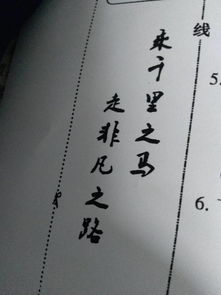 乘千里之马
走非凡之路
线
5.
6.